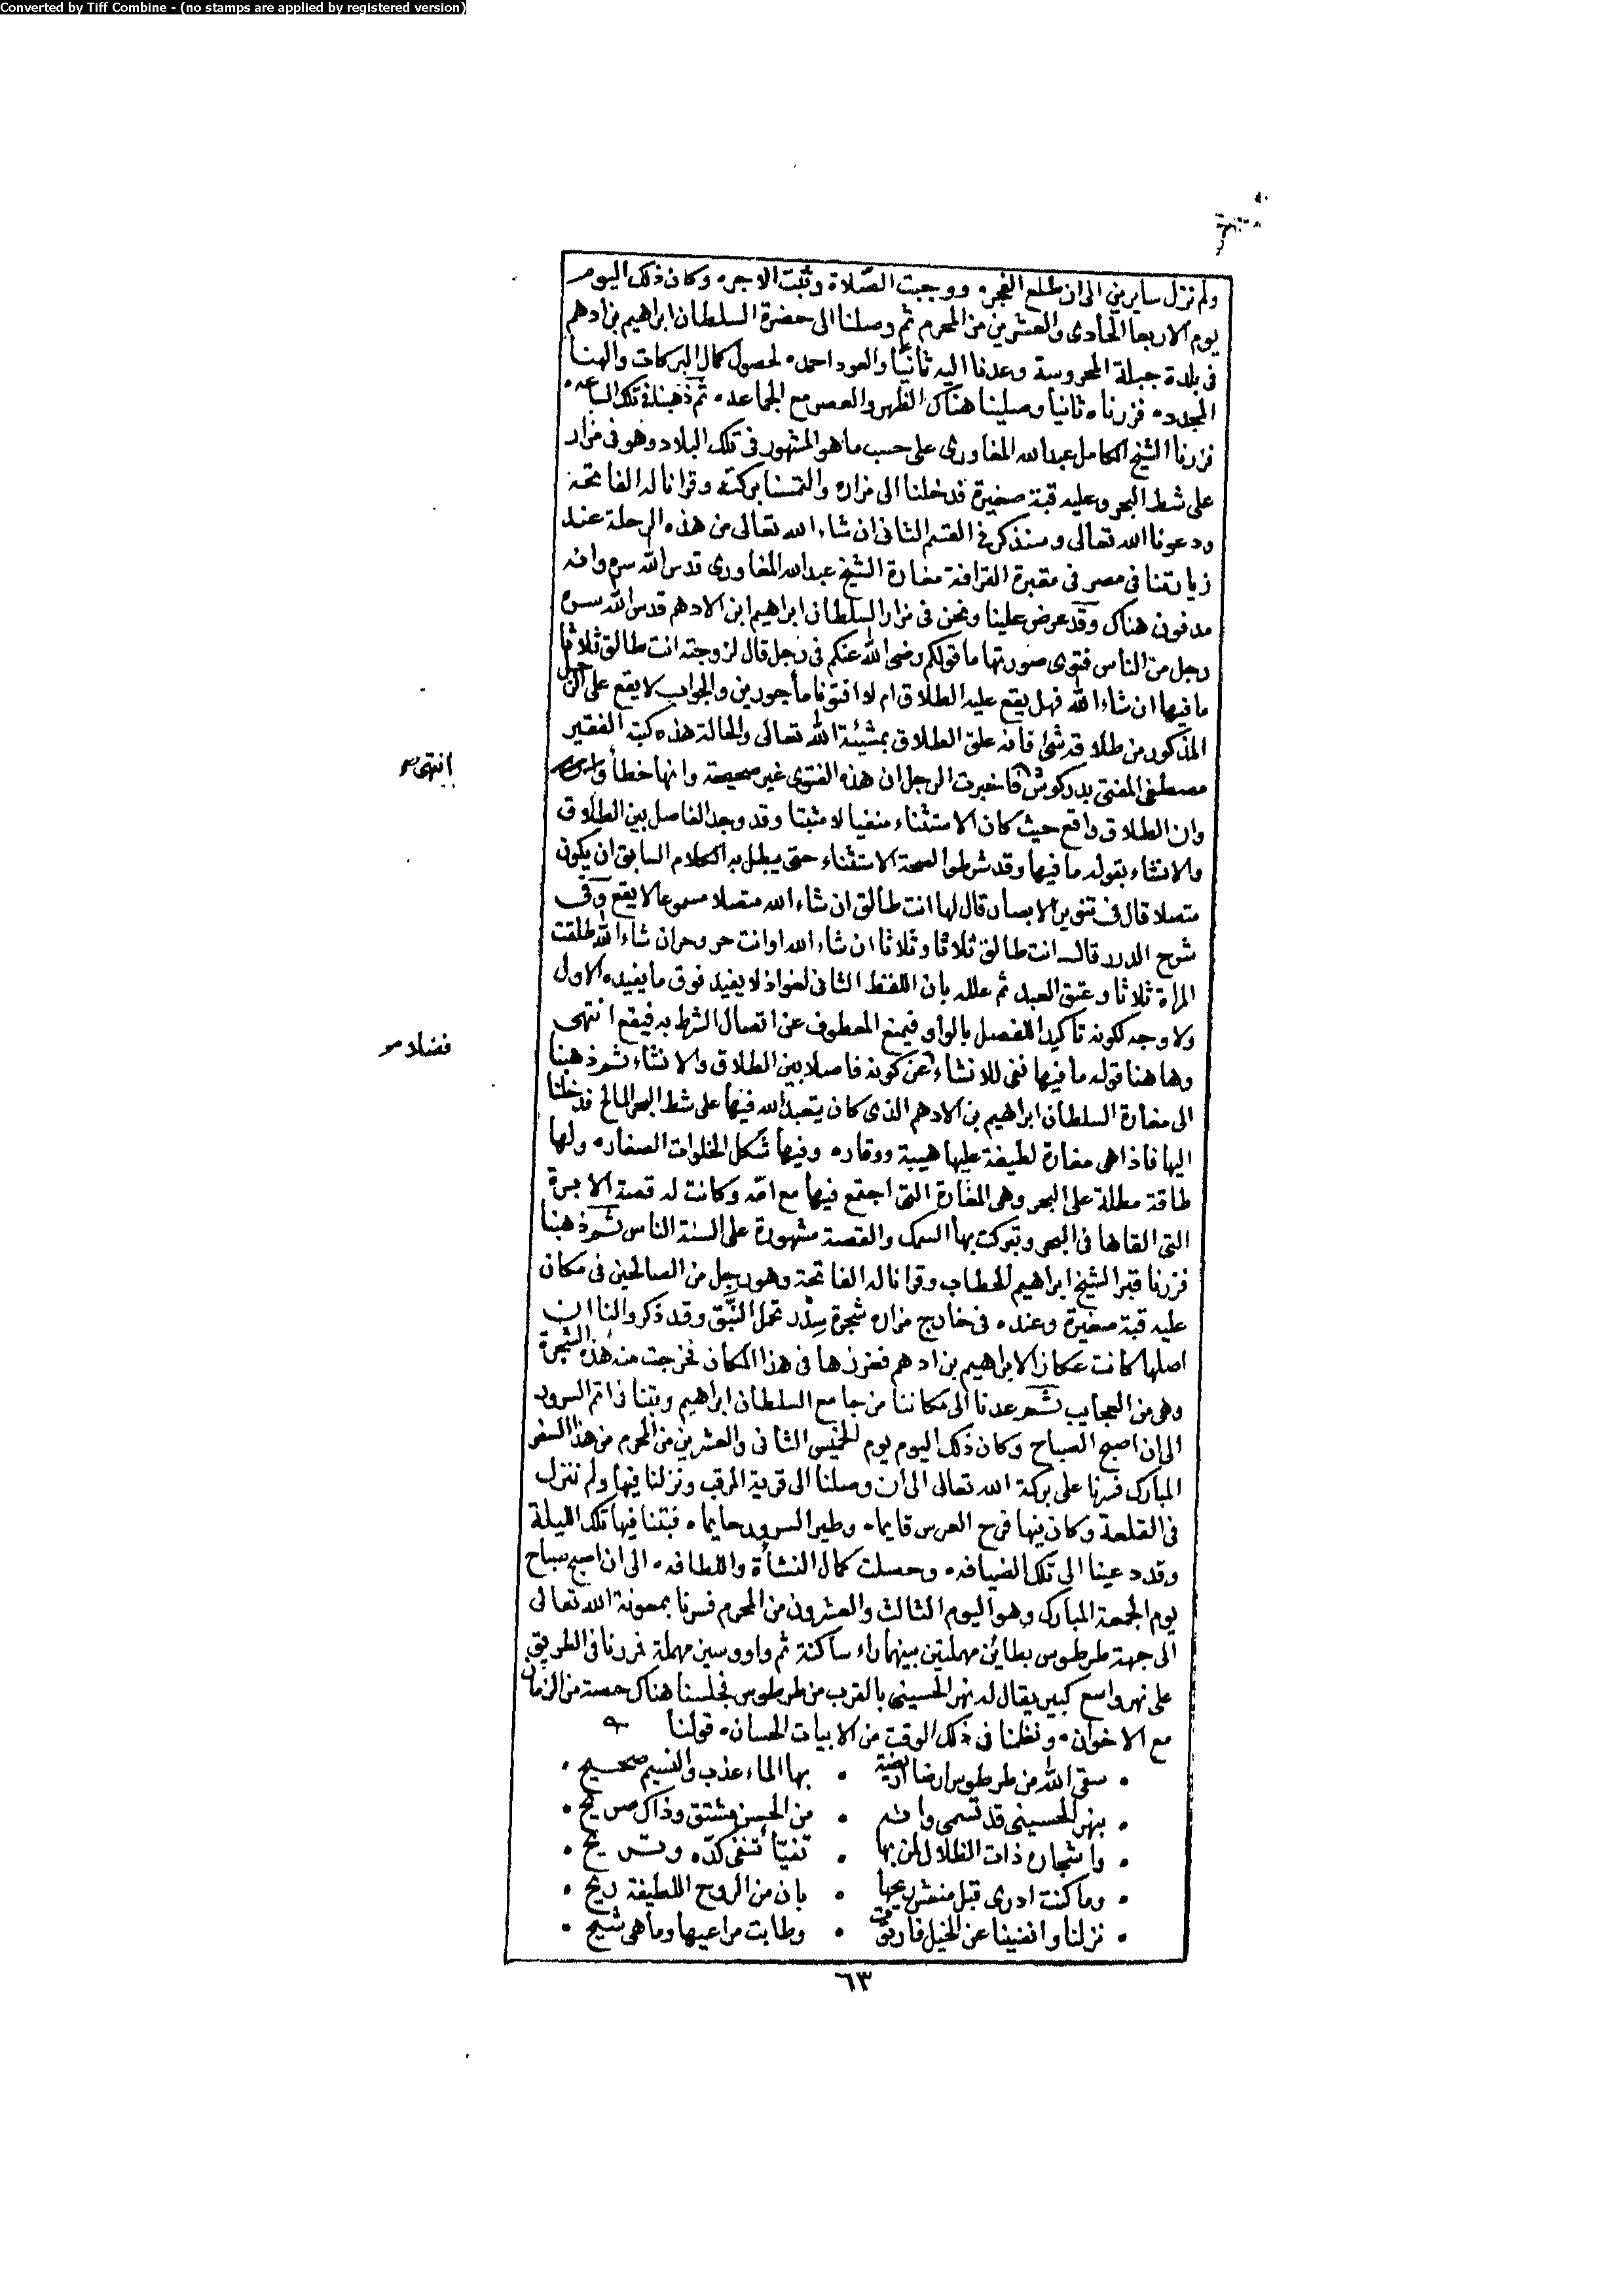 Converted by Tiff Combine - (no stamps are applied by registered version)
ولم نزل سايرين الى ان طلع الفجر ووجبت الصّلاة وثبت الاجر وكان ذلك اليوم
يوم الاربعا الحادى والعشرين من المحرم ثم وصلنا الى حضرة السلطان ابراهيم بن ادهم
فى بلدة جبلة المحروسة وعدنا اليه ثانيًا والعود احمد لحصول كمال البركات والهنا
المجدد فزرناه ثانيا وصلينا هناك الظهر والعصر مع الجماعه ثم ذهبنا فى تلك الساعه
فزرنا الشيخ الكامل عبد الله المغاورى على حسب ما هو المشهور فى تلك البلاد وهو فى مزار
على شط البحر وعليه قبة صغيرة فدخلنا الى مزاره والتمسنا بركته وقرانا له الفاتحة
ودعونا الله تعالى وسنذكر فى القسم الثانى ان شاء الله تعالى من هذه الرحلة عند
زيارتنا فى مصر فى مقبرة القرافة مغارة الشيخ عبد الله المغاورى قدس الله سره وانه
مدفون هناك وقد عرض علينا ونحن فى مزار السلطان ابراهيم ابن الادهم قدس الله سره
رجل من الناس فتوى صورتها ما قولكم رضى الله عنكم فى رجل قال لزوجته انت طالق ثلاثا
ما فيها ان شاء الله فهل يقع عليه الطلاق ام لا افتونا مأجورين والجواب لا يقع على الرجل
المذكور من طلاقه شئ فانه علق الطلاق بمشيئة الله تعالى والحالة هذه كتبه الفقير
مصطفى المفتى بدركوش فاخبرت الرجل ان هذه الفتوى غير صحيحة وانها خطأ
انتهى
وان الطلاق واقع حيث كان الاستثناء منفيا لا مثبتا وقد وجد الفاصل بين الطلاق
والانشاء بقوله ما فيها وقد شرطوا لصحة الاستثناء حتى يبطل به الكلام السابق ان يكون
متصلا قال فى تنوير الابصار قال لها انت طالق ان شاء الله متصلا مسموعا لا يقع وفى
شرح الدرر قال انت طالق ثلاثا وثلاثا ان شاء الله او انت حر وحر ان شاء الله طلقت
المراة ثلاثا وعتق العبد ثم علله بان اللفظ الثانى لغو اذ لا يفيد فوق ما يفيده الاول
ولا وجه لكونه تاكيدا للفصل بالواو فيمنع المعطوف عن اتصال الشرط به فيقع انتهى
وها هنا قوله ما فيها نفى للانشاء عن كونه فاصلا بين الطلاق والانشاء ثم ذهبنا
فضلا
الى مغارة السلطان ابراهيم بن الادهم الذى كان يتعبد الله فيها على شط البحر المالح فدخلنا
اليها فاذا هى مغارة لطيفة عليها هيبة ووقاره وفيها شكل الخلوات الصغاره ولها
طاقة مطلة على البحر وهى المغارة التى اجتمع فيها مع امّه وكانت له قصة الابرة
التى القاها فى البحر وتبركت بها السمك والقصة مشهورة على السنة الناس ثم ذهبنا
فزرنا قبر الشيخ ابراهيم الحطاب وقرانا له الفاتحة وهو رجل من الصالحين فى مكان
عليه قبة صغيرة وعنده فى خارج مزاره شجرة سِدْر تحمل النَّبِق وقد ذكروا لنا ان
اصلها كانت عكاز لابراهيم بن ادهم فغرزها فى هذا المكان فخرجت منه هذه الشجرة
وهى من العجايب ثم عدنا الى مكاننا من جامع السلطان ابراهيم وبتنا فى اتم السرور
الى ان اصبح الصباح وكان ذلك اليوم يوم الخميس الثانى والعشرين من المحرم من هذا السفر
المبارك فسرنا على بركة الله تعالى الى ان وصلنا الى قرية المرقب ونزلنا فيها ولم ننزل
فى القلعة وكان فيها فرح العرس قايما وطير السرور حايما فبتنا فيها تلك الليلة
وقد دعينا الى تلك الضيافه وحصلت كمال النشأة واللطافه الى ان اصبح صباح
يوم الجمعة المبارك وهو اليوم الثالث والعشرون من المحرم فسرنا بمعونة الله تعالى
الى جهة طرطوس بطائين مهملتين بينهما راء ساكنة ثم واو وسين مهملة فمررنا فى الطريق
على نهر واسع كبير يقال له نهر الحسينى بالقرب من طرطوس فجلسنا هناك حصة من الزمان
مع الاخوان ونظمنا فى ذلك الوقت من الابيات الحسان قولنا
سقى الله من طرطوس ارضا اريضة • بها الماء عذب والنسيم صحيح •
بنهر الحسينى قد تسمى وانه • من الحسن مشتق وذاك صريح •
واشجاره ذات الظلال لمن بها • تفيّأ تنفى كدّه وتريح •
وما كنت ادرى قبل منعش ريحها • بان من الروح اللطيفة ريح •
نزلنا وانضينا عن الخيل فارتقت • وطابت مراعيها وما هى شيح •
٦٣